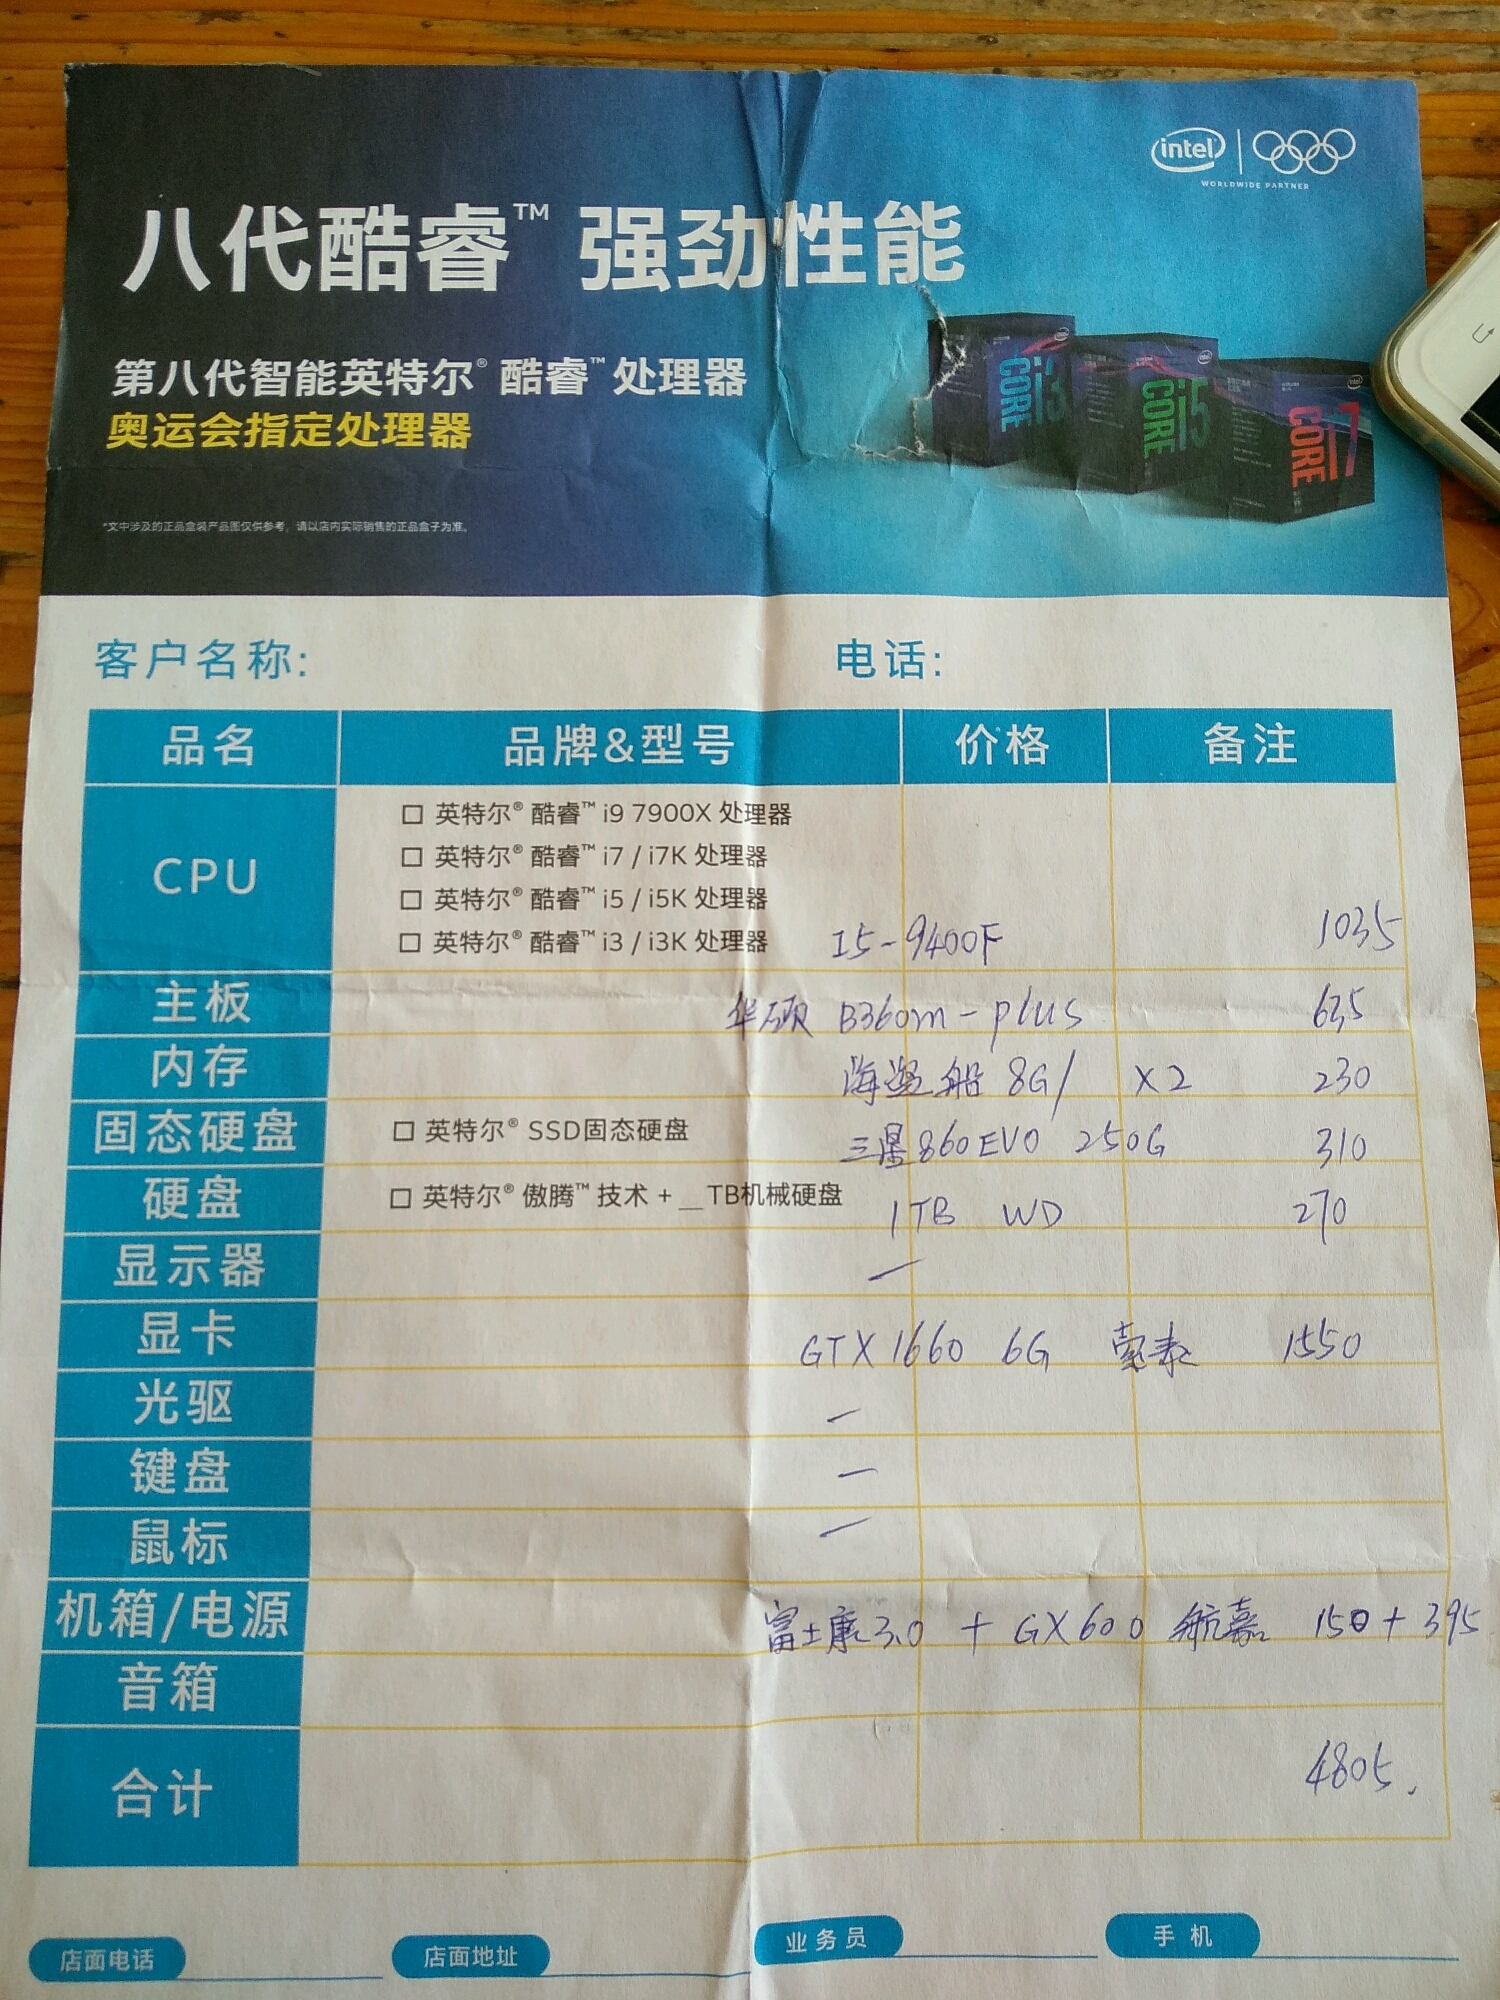 intel
WORLDWIDE PARTNER
八代酷睿™ 强劲性能
第八代智能英特尔® 酷睿™ 处理器
奥运会指定处理器
*文中涉及的正品盒装产品图仅供参考，请以店内实际销售的正品盒子为准。
CORE i3
CORE i5
CORE i7
客户名称: 电话:
品名 品牌&型号 价格 备注
CPU
□ 英特尔® 酷睿™ i9 7900X 处理器
□ 英特尔® 酷睿™ i7 / i7K 处理器
□ 英特尔® 酷睿™ i5 / i5K 处理器
□ 英特尔® 酷睿™ i3 / i3K 处理器 I5-9400F 1035
主板 华硕 B360m-plus 635
内存 海盗船 8G/ X2 230
固态硬盘 □ 英特尔® SSD固态硬盘 三星860EVO 250G 310
硬盘 □ 英特尔® 傲腾™ 技术 + __TB机械硬盘 1TB WD 270
显示器 —
显卡 GTX 1660 6G 索泰 1550
光驱 —
键盘 —
鼠标 —
机箱/电源 富士康3.0 + GX600 航嘉 150+395
音箱
合计 4805.
店面电话 店面地址 业务员 手机